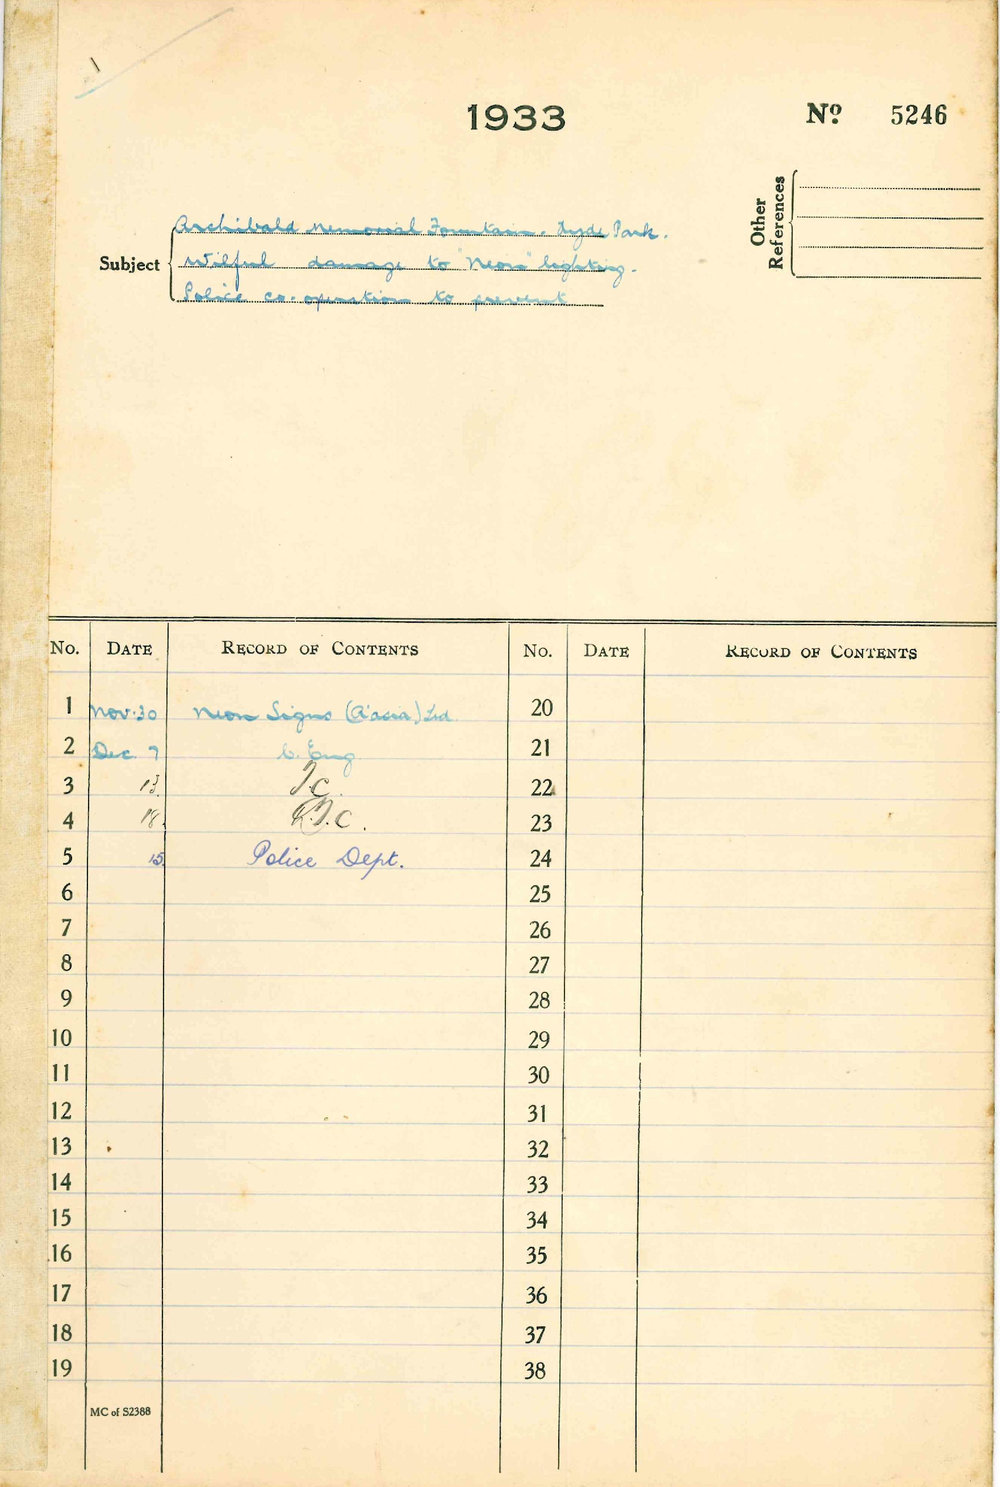 1
1933
Nº 5246
Other References
Subject
Archibald Memorial Fountain. Hyde Park.
Wilful damage to "Neon" lighting.
Police co-operation to prevent
No. DATE RECORD OF CONTENTS No. DATE RECORD OF CONTENTS
1 Nov. 30 Neon Signs (A'asia) Ltd. 20
2 Dec. 7 C. Eng 21
3 13. T.C. 22
4 18. 23
5 15 Police Dept. 24
6 25
7 26
8 27
9 28
10 29
11 30
12 31
13 32
14 33
15 34
16 35
17 36
18 37
19 38
MC of S2388